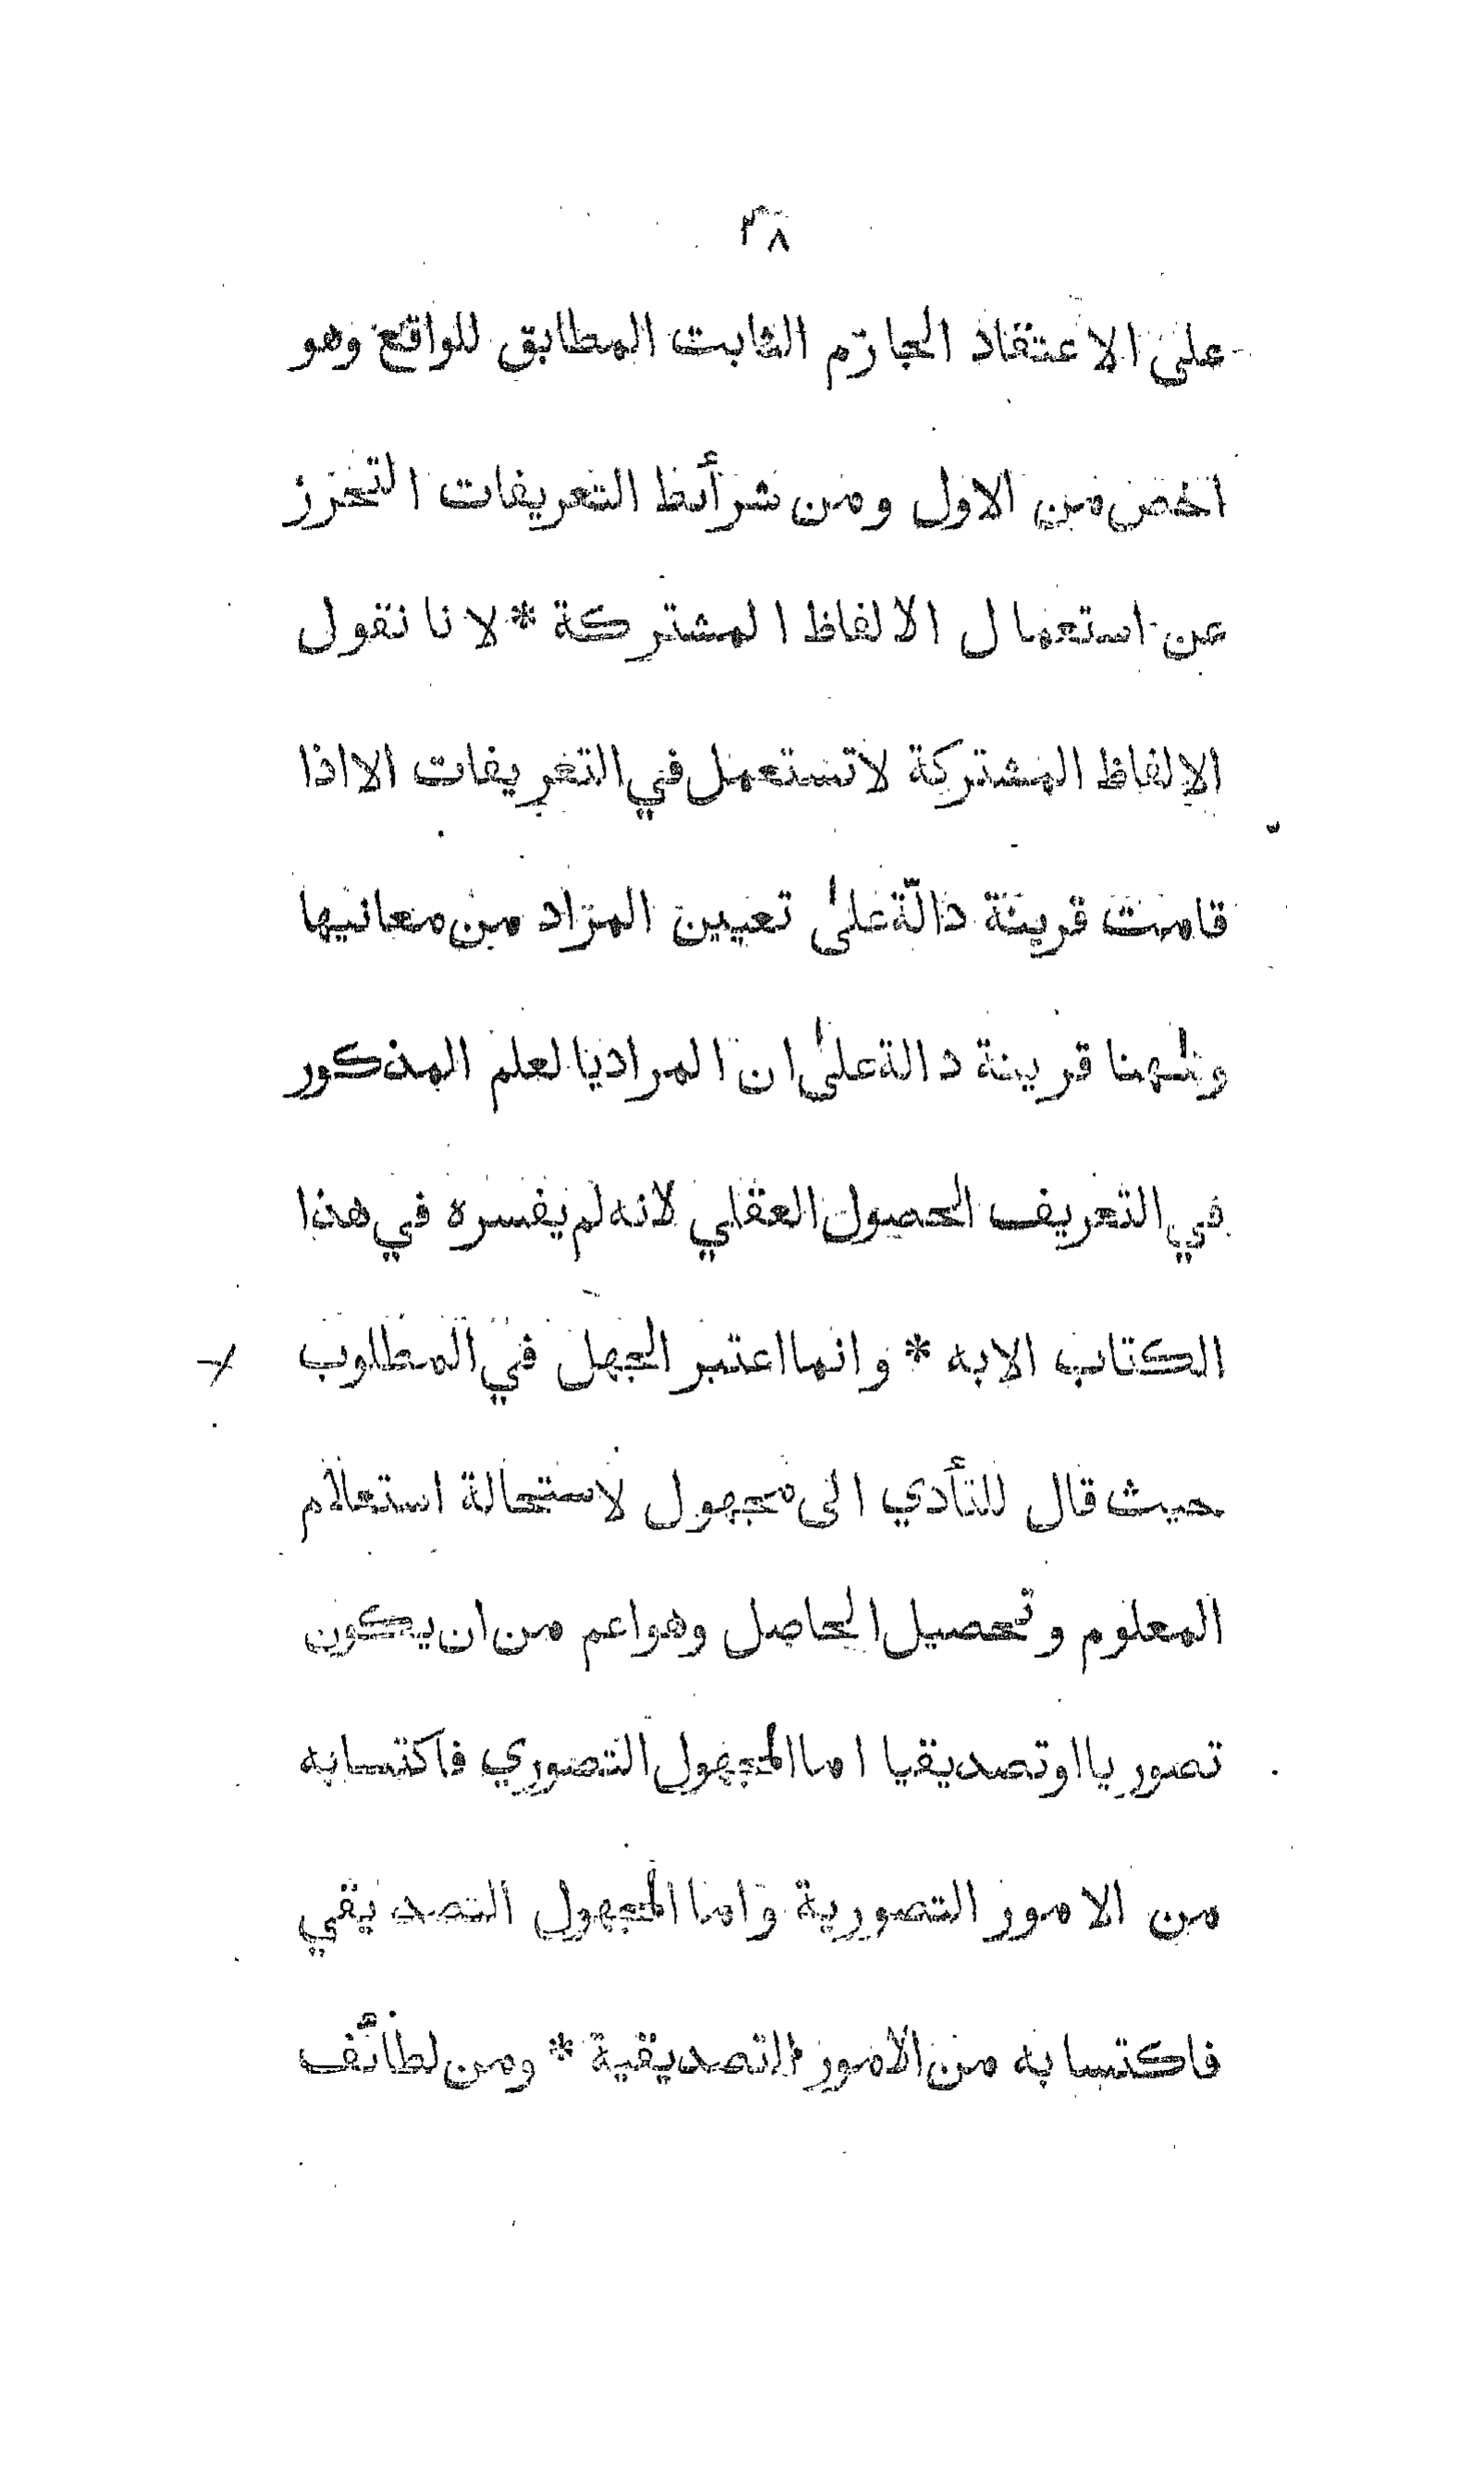 ٣٨
على الاعتقاد الجازم الثابت المطابق للواقع وهو
اخص من الاول ومن شرأئط التعريفات التحرز
عن استعمال الالفاظ المشتركة * لانا نقول
الالفاظ المشتركة لاتستعمل في التعريفات الا اذا
قامت قرينة دالّة على تعيين المراد من معانيها
وههنا قرينة دالة على ان المراد بالعلم المذكور
في التعريف الحصول العقلي لانه لم يفسره في هذا
الكتاب الابه * وانما اعتبر الجهل في المطلوب
حيث قال للتأدي الى مجهول لاستحالة استعلام
المعلوم وتحصيل الحاصل وهو اعم من ان يكون
تصوريا او تصديقيا اما المجهول التصوري فاكتسابه
من الامور التصورية واما المجهول التصديقي
فاكتسابه من الامور التصديقية * ومن لطأئف